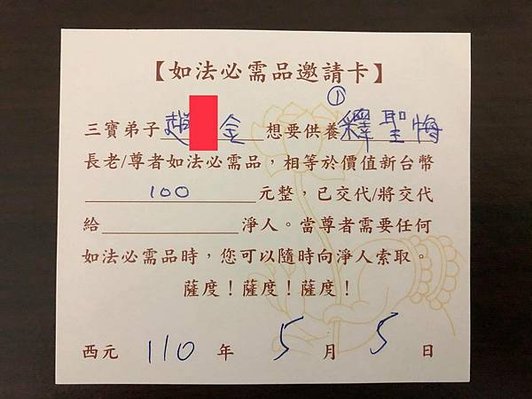 【如法必需品邀請卡】
①
三寶弟子趙 金 想要供養釋聖悔
長老/尊者如法必需品，相等於價值新台幣
100 元整，已交代/將交代
給 淨人。當尊者需要任何
如法必需品時，您可以隨時向淨人索取。
薩度！薩度！薩度！
西元 110 年 5 月 5 日